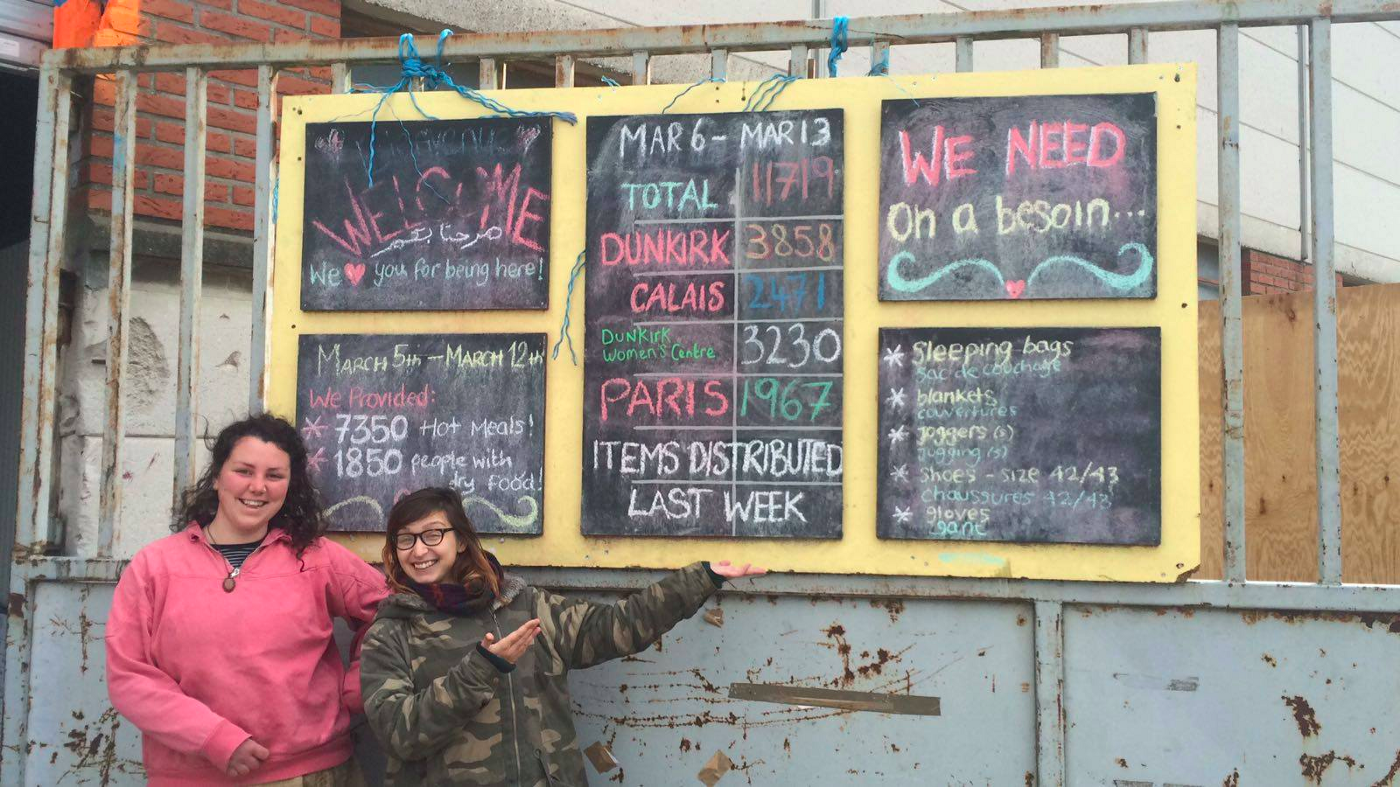 WELCOME
We ♥ you for being here!
March 5th – March 12th
We Provided:
* 7350 Hot Meals!
* 1850 people with
dry food!
MAR 6 - MAR 13
TOTAL 11719
DUNKIRK 3858
CALAIS 2471
DUNKIRK
WOMEN'S CENTRE 3230
PARIS 1967
ITEMS DISTRIBUTED
LAST WEEK
WE NEED
on a besoin...
* Sleeping bags
sac de couchage
* blankets
couvertures
* joggers (s)
jogging (s)
* Shoes - size 42/43
chaussures 42/43
* gloves
gant